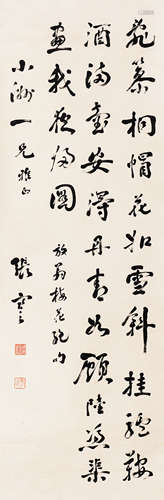 亂篸桐帽花如雪斜挂驢鞍
酒滿壺安得丹青如顧陸憑渠
畫我夜歸圖
放翁梅花絕句
小洲一兄雅正
張